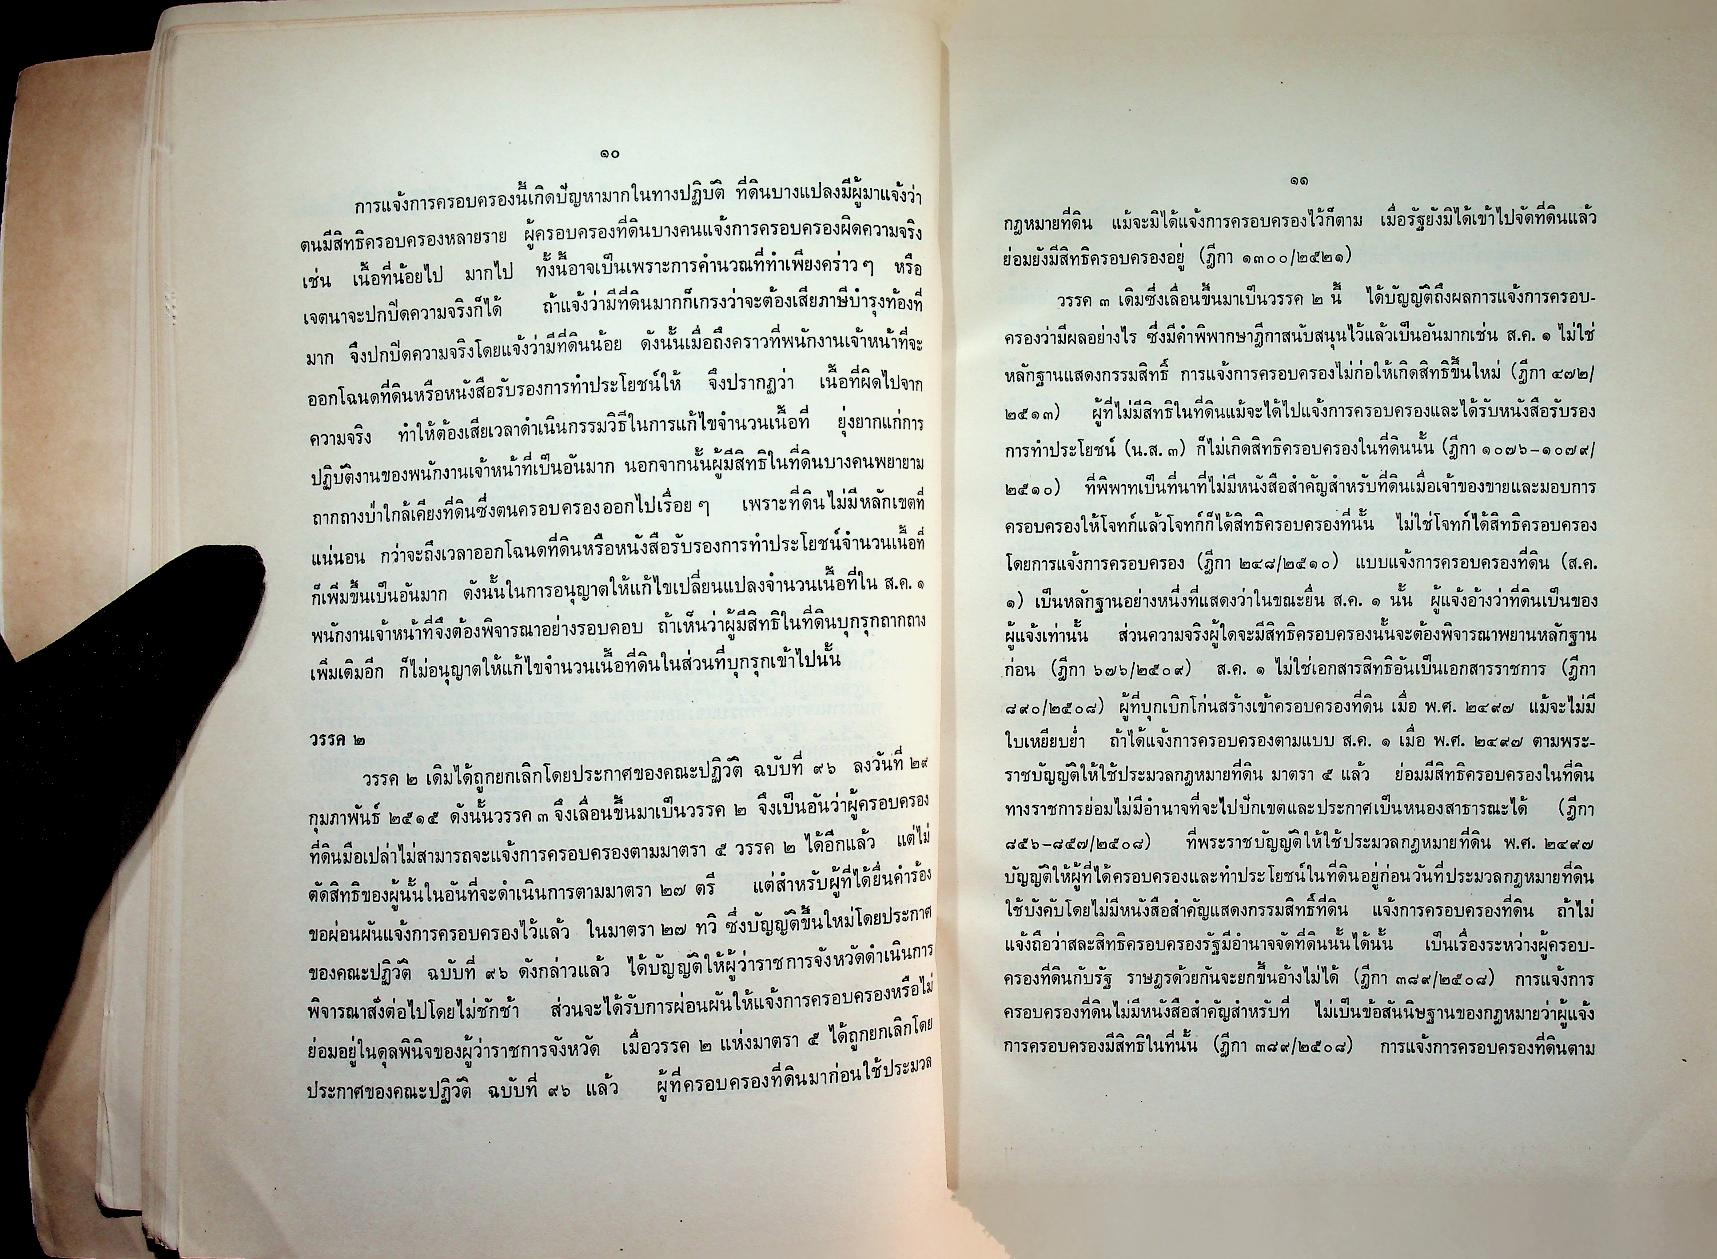 ๑๐
การแจ้งการครอบครองนี้เกิดปัญหามากในทางปฏิบัติ ที่ดินบางแปลงมีผู้มาแจ้งว่า
ตนมีสิทธิครอบครองหลายราย ผู้ครอบครองที่ดินบางคนแจ้งการครอบครองผิดความจริง
เช่น เนื้อที่น้อยไป มากไป ทั้งนี้อาจเป็นเพราะการคำนวณที่ทำเพียงคร่าว ๆ หรือ
เจตนาจะปกปิดความจริงก็ได้ ถ้าแจ้งว่ามีที่ดินมากก็เกรงว่าจะต้องเสียภาษีบำรุงท้องที่
มาก จึงปกปิดความจริงโดยแจ้งว่ามีที่ดินน้อย ดังนั้นเมื่อถึงคราวที่พนักงานเจ้าหน้าที่จะ
ออกโฉนดที่ดินหรือหนังสือรับรองการทำประโยชน์ให้ จึงปรากฏว่า เนื้อที่ผิดไปจาก
ความจริง ทำให้ต้องเสียเวลาดำเนินกรรมวิธีในการแก้ไขจำนวนเนื้อที่ ยุ่งยากแก่การ
ปฏิบัติงานของพนักงานเจ้าหน้าที่เป็นอันมาก นอกจากนั้นผู้มีสิทธิในที่ดินบางคนพยายาม
ถากถางป่าใกล้เคียงที่ดินซึ่งตนครอบครองออกไปเรื่อย ๆ เพราะที่ดินไม่มีหลักเขตที่
แน่นอน กว่าจะถึงเวลาออกโฉนดที่ดินหรือหนังสือรับรองการทำประโยชน์จำนวนเนื้อที่
ก็เพิ่มขึ้นเป็นอันมาก ดังนั้นในการอนุญาตให้แก้ไขเปลี่ยนแปลงจำนวนเนื้อที่ใน ส.ค. ๑
พนักงานเจ้าหน้าที่จึงต้องพิจารณาอย่างรอบคอบ ถ้าเห็นว่าผู้มีสิทธิในที่ดินบุกรุกถากถาง
เพิ่มเติมอีก ก็ไม่อนุญาตให้แก้ไขจำนวนเนื้อที่ดินในส่วนที่บุกรุกเข้าไปนั้น
วรรค ๒
วรรค ๒ เดิมได้ถูกยกเลิกโดยประกาศของคณะปฏิวัติ ฉบับที่ ๙๖ ลงวันที่ ๒๙
กุมภาพันธ์ ๒๕๑๕ ดังนั้นวรรค ๓ จึงเลื่อนขึ้นมาเป็นวรรค ๒ จึงเป็นอันว่าผู้ครอบครอง
ที่ดินมือเปล่าไม่สามารถจะแจ้งการครอบครองตามมาตรา ๕ วรรค ๒ ได้อีกแล้ว แต่ไม่
ตัดสิทธิของผู้นั้นในอันที่จะดำเนินการตามมาตรา ๒๗ ตรี แต่สำหรับผู้ที่ได้ยื่นคำร้อง
ขอผ่อนผันแจ้งการครอบครองไว้แล้ว ในมาตรา ๒๗ ทวิ ซึ่งบัญญัติขึ้นใหม่โดยประกาศ
ของคณะปฏิวัติ ฉบับที่ ๙๖ ดังกล่าวแล้ว ได้บัญญัติให้ผู้ว่าราชการจังหวัดดำเนินการ
พิจารณาสั่งต่อไปโดยไม่ชักช้า ส่วนจะได้รับการผ่อนผันให้แจ้งการครอบครองหรือไม่
ย่อมอยู่ในดุลพินิจของผู้ว่าราชการจังหวัด เมื่อวรรค ๒ แห่งมาตรา ๕ ได้ถูกยกเลิกโดย
ประกาศของคณะปฏิวัติ ฉบับที่ ๙๖ แล้ว ผู้ที่ครอบครองที่ดินมาก่อนใช้ประมวล
๑๑
กฎหมายที่ดิน แม้จะมิได้แจ้งการครอบครองไว้ก็ตาม เมื่อรัฐยังมิได้เข้าไปจัดที่ดินแล้ว
ย่อมยังมีสิทธิครอบครองอยู่ (ฎีกา ๑๓๐๐/๒๕๒๑)
วรรค ๓ เดิมซึ่งเลื่อนขึ้นมาเป็นวรรค ๒ นี้ ได้บัญญัติถึงผลการแจ้งการครอบ-
ครองว่ามีผลอย่างไร ซึ่งมีคำพิพากษาฎีกาสนับสนุนไว้แล้วเป็นอันมากเช่น ส.ค. ๑ ไม่ใช่
หลักฐานแสดงกรรมสิทธิ์ การแจ้งการครอบครองไม่ก่อให้เกิดสิทธิขึ้นใหม่ (ฎีกา ๔๗๒/
๒๕๑๓) ผู้ที่ไม่มีสิทธิในที่ดินแม้จะได้ไปแจ้งการครอบครองและได้รับหนังสือรับรอง
การทำประโยชน์ (น.ส. ๓) ก็ไม่เกิดสิทธิครอบครองในที่ดินนั้น (ฎีกา ๑๐๗๖–๑๐๗๙/
๒๕๑๐) ที่พิพาทเป็นที่นาที่ไม่มีหนังสือสำคัญสำหรับที่ดินเมื่อเจ้าของขายและมอบการ
ครอบครองให้โจทก์แล้วโจทก์ก็ได้สิทธิครอบครองที่นั้น ไม่ใช่โจทก์ได้สิทธิครอบครอง
โดยการแจ้งการครอบครอง (ฎีกา ๒๔๘/๒๕๑๐) แบบแจ้งการครอบครองที่ดิน (ส.ค.
๑) เป็นหลักฐานอย่างหนึ่งที่แสดงว่าในขณะยื่น ส.ค. ๑ นั้น ผู้แจ้งอ้างว่าที่ดินเป็นของ
ผู้แจ้งเท่านั้น ส่วนความจริงผู้ใดจะมีสิทธิครอบครองนั้นจะต้องพิจารณาพยานหลักฐาน
ก่อน (ฎีกา ๖๗๖/๒๕๐๙) ส.ค. ๑ ไม่ใช่เอกสารสิทธิอันเป็นเอกสารราชการ (ฎีกา
๘๙๐/๒๕๐๘) ผู้ที่บุกเบิกโก่นสร้างเข้าครอบครองที่ดิน เมื่อ พ.ศ. ๒๔๙๗ แม้จะไม่มี
ใบเหยียบย่ำ ถ้าได้แจ้งการครอบครองตามแบบ ส.ค. ๑ เมื่อ พ.ศ. ๒๔๙๗ ตามพระ-
ราชบัญญัติให้ใช้ประมวลกฎหมายที่ดิน มาตรา ๕ แล้ว ย่อมมีสิทธิครอบครองในที่ดิน
ทางราชการย่อมไม่มีอำนาจที่จะไปปักเขตและประกาศเป็นหนองสาธารณะได้ (ฎีกา
๘๕๖–๘๕๗/๒๕๐๘) ที่พระราชบัญญัติให้ใช้ประมวลกฎหมายที่ดิน พ.ศ. ๒๔๙๗
บัญญัติให้ผู้ที่ได้ครอบครองและทำประโยชน์ในที่ดินอยู่ก่อนวันที่ประมวลกฎหมายที่ดิน
ใช้บังคับโดยไม่มีหนังสือสำคัญแสดงกรรมสิทธิ์ที่ดิน แจ้งการครอบครองที่ดิน ถ้าไม่
แจ้งถือว่าสละสิทธิครอบครองรัฐมีอำนาจจัดที่ดินนั้นได้นั้น เป็นเรื่องระหว่างผู้ครอบ-
ครองที่ดินกับรัฐ ราษฎรด้วยกันจะยกขึ้นอ้างไม่ได้ (ฎีกา ๓๘๙/๒๕๐๘) การแจ้งการ
ครอบครองที่ดินไม่มีหนังสือสำคัญสำหรับที่ ไม่เป็นข้อสันนิษฐานของกฎหมายว่าผู้แจ้ง
การครอบครองมีสิทธิในที่นั้น (ฎีกา ๓๘๙/๒๕๐๘) การแจ้งการครอบครองที่ดินตาม